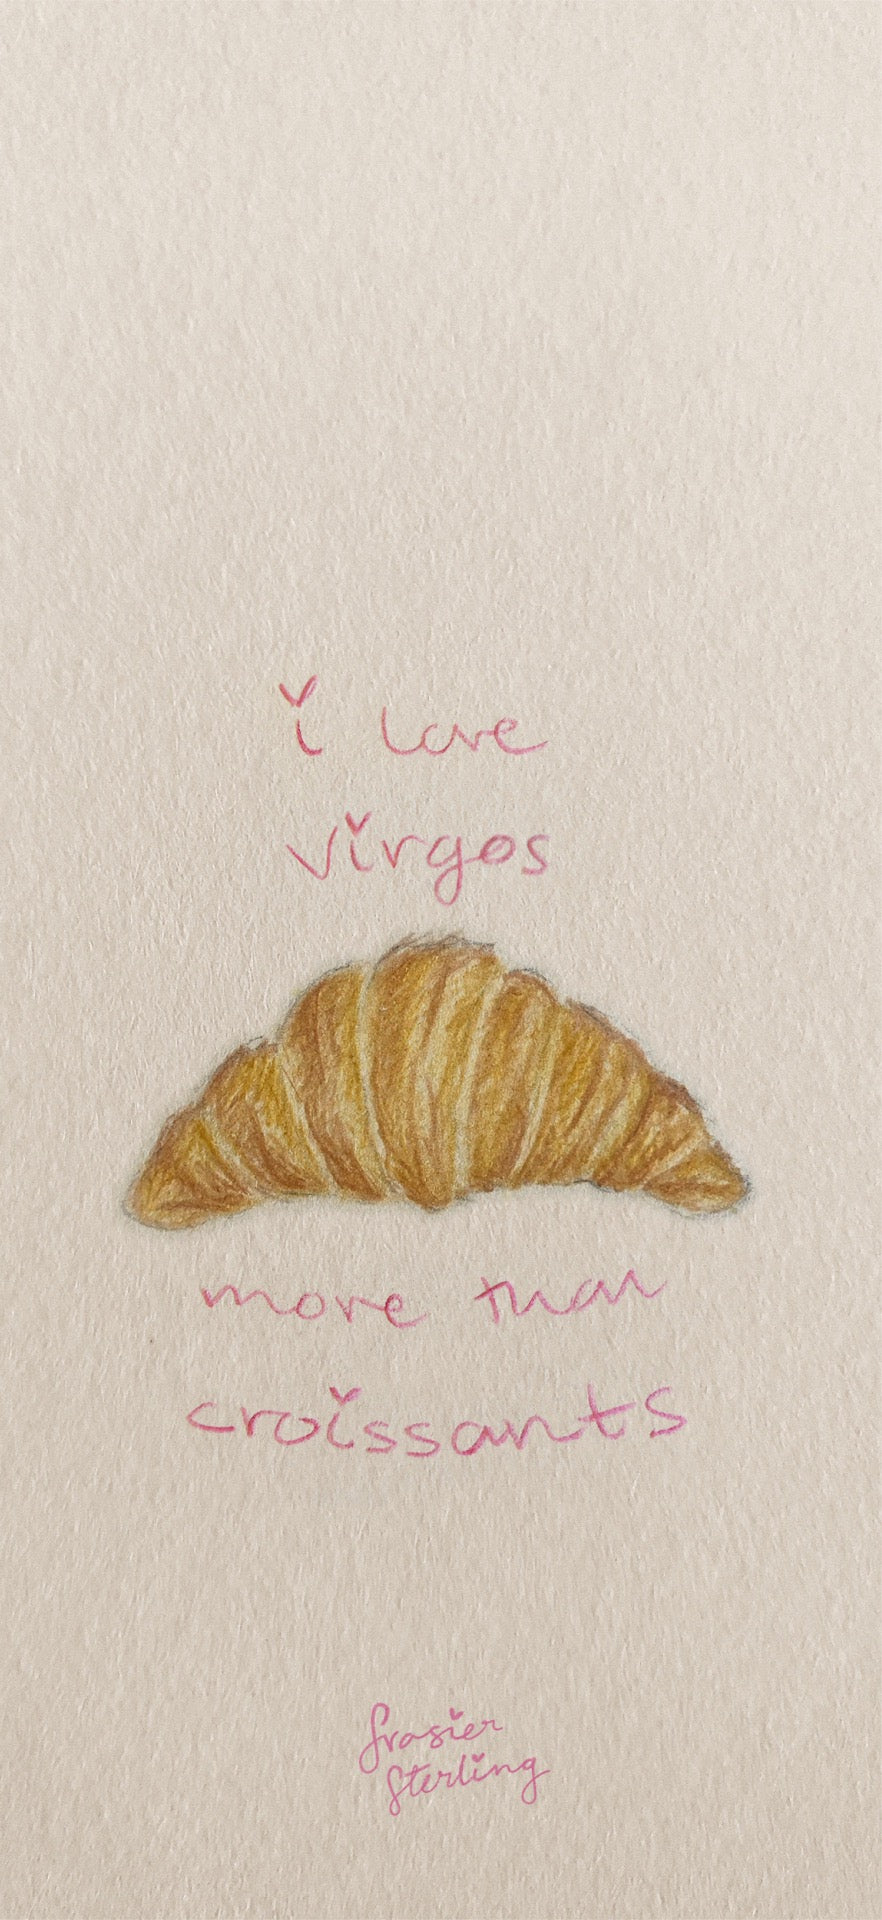 i love
virgos
more than
croissants
frasier
sterling